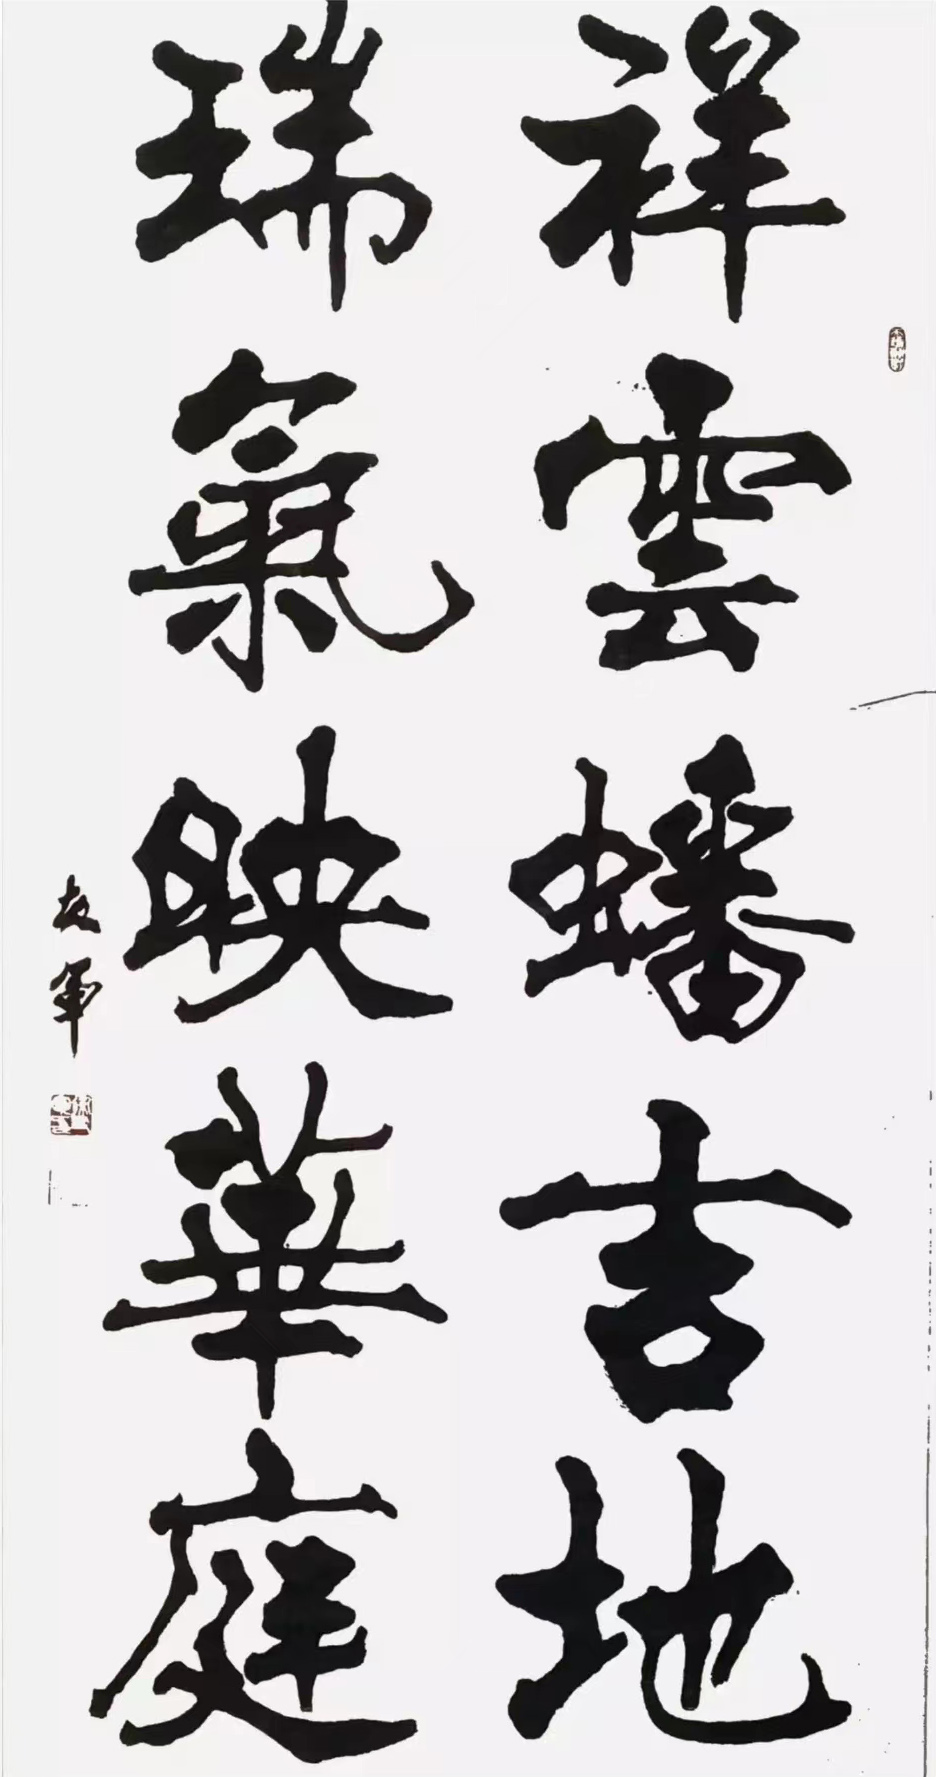 祥雲蟠吉地
瑞氣映華庭
友軍